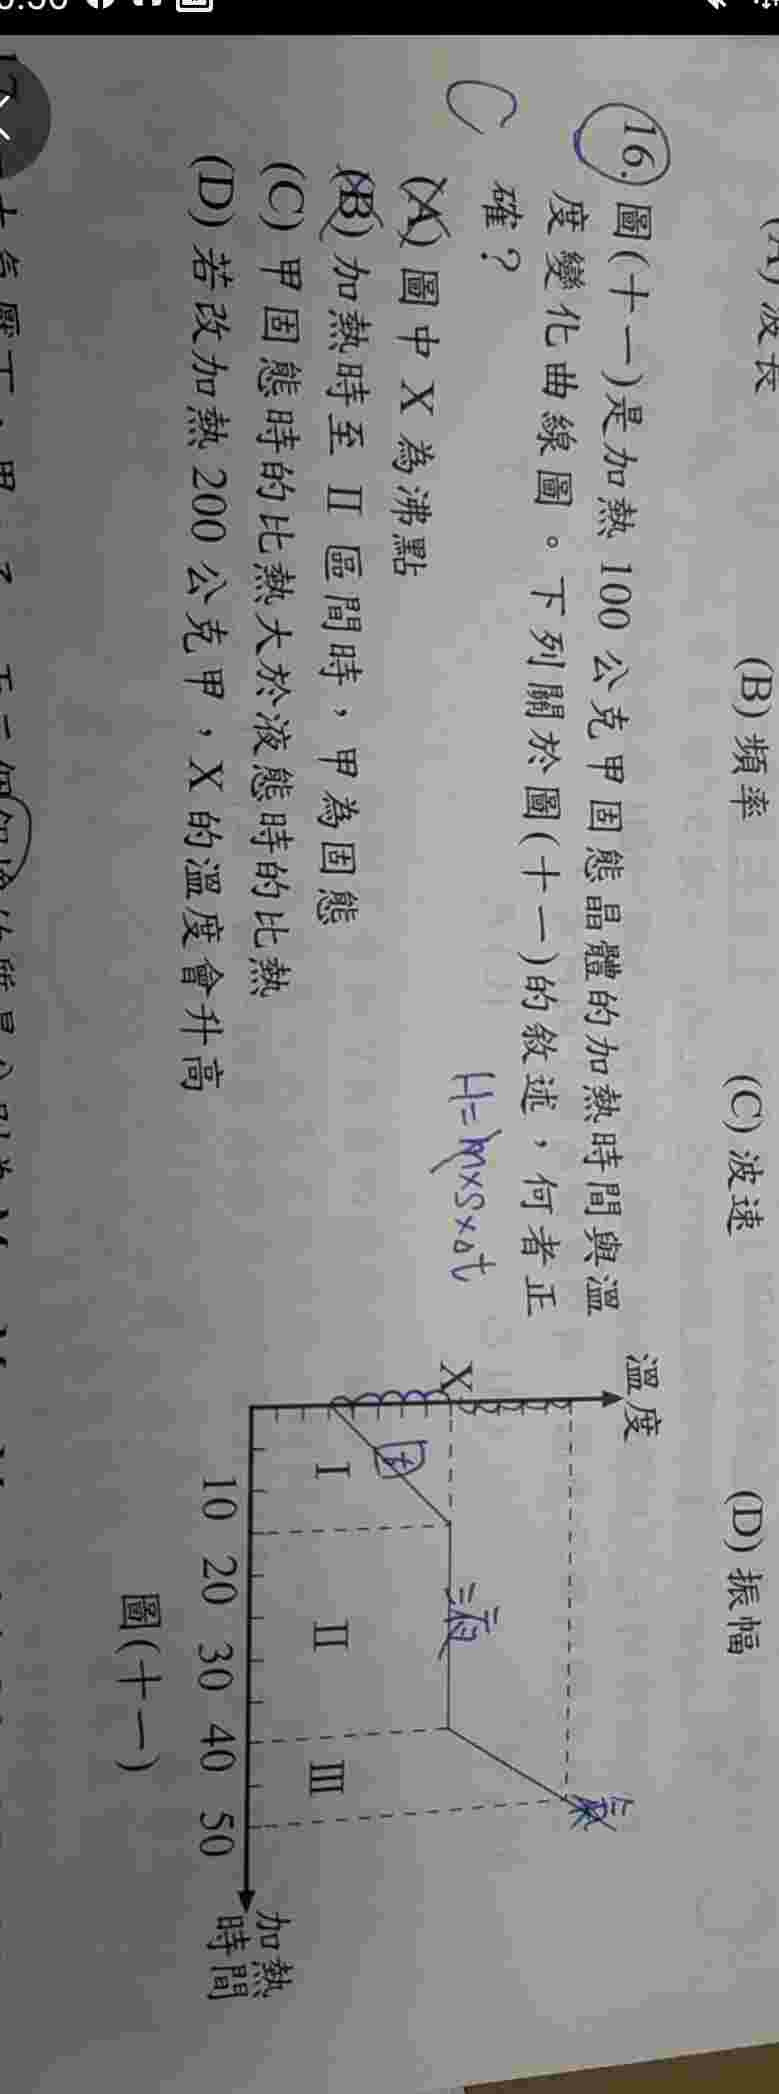 (A) 波長 (B) 頻率 (C) 波速 (D) 振幅
16. 圖(十一)是加熱 100 公克甲固態晶體的加熱時間與溫
度變化曲線圖。下列關於圖(十一)的敘述,何者正
確?
C
H=m×s×△t
(A) 圖中 X 為沸點
(B) 加熱時至 II 區間時,甲為固態
(C) 甲固態時的比熱大於液態時的比熱
(D) 若改加熱 200 公克甲,X 的溫度會升高
溫度
X
固
液
I II III
10 20 30 40 50
加熱
時間
圖(十一)